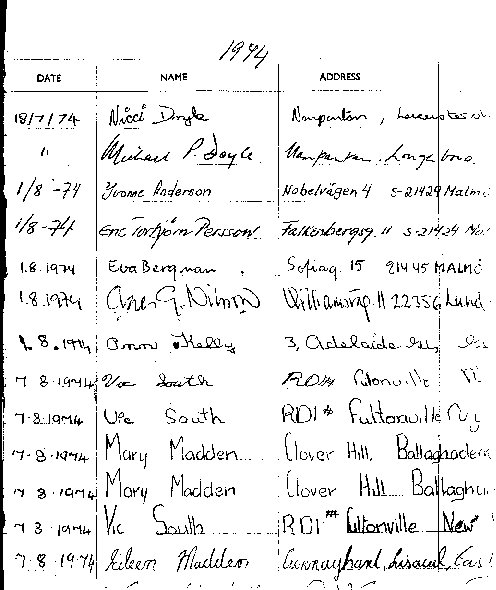 1974
DATE NAME ADDRESS
18/7/74 Nicci Doyle Nanpantan, Leicestersh
" Michael P. Doyle Nanpantan, Loughboro
1/8-74 Yvonne Anderson Nobelvägen 4 S-21429 Malmö
1/8-74 Eric Torbjörn Persson Falkenbergsg. 11 S-21424
1.8.1974 Eva Bergman Sofiag. 15 21445 MALMÖ
1.8.1974 G. Nilsson 11 22356 Lund
1.8.1974 Ann Kelly 3, Adelaide
7 8 1974 Vic South RD1# Fultonville
7.8.1974 Vic South RD1# Fultonville N.Y
7.8.1974 Mary Madden Clover Hill Ballaghadere
7 8 1974 Mary Madden Clover Hill Ballagha
7 8 1974 Vic South RD1## Fultonville New
7.8.1974 Eileen Madden Lisacul, Cas